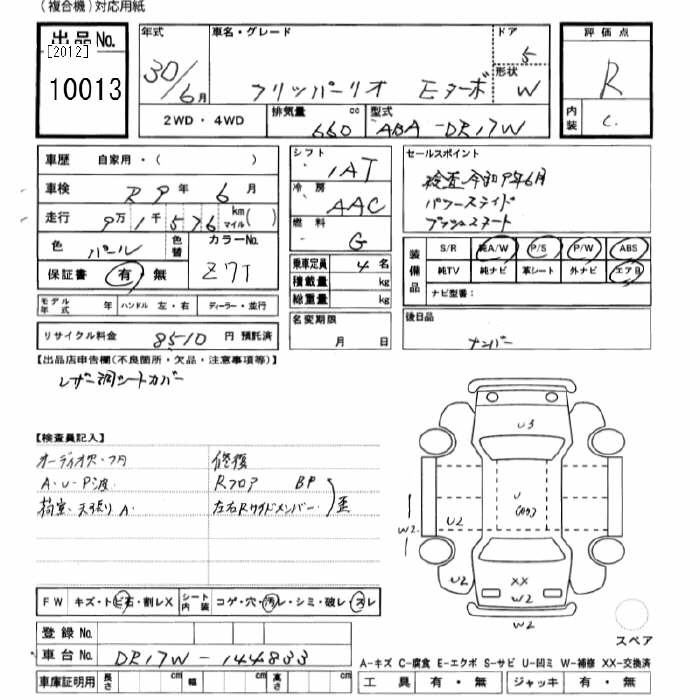 (複合機)対応用紙
出品No.
[2012]
10013
年式
30/6月
車名・グレード
クリッパーリオ Eターボ
ドア
5
形状
W
評価点
R
内装
C
2WD・4WD
排気量 660 cc
型式 ABA-DR17W
車歴 自家用・( )
車検 R9年6月
走行 9万1千576 km マイル( )
色 パール
色替
カラーNo. Z7T
保証書 有・無
モデル年式 年 ハンドル 左・右 ディーラー・並行
リサイクル料金 8510 円 預託済
シフト IAT
冷房 AAC
燃料 G
乗車定員 4名
積載量 kg
総重量 kg
名変期限
月 日
セールスポイント
検査 令和9年6月
パワースライド
プッシュスタート
装備品
S/R 純A/W P/S P/W ABS
純TV 純ナビ 革シート 外ナビ エアB
ナビ型番:
後日品
ナンバー
【出品店申告欄(不良箇所・欠品・注意事項等)】
レザー調シートカバー
【検査員記入】
オーディオ欠・フタ
A・U・P波
荷室・天張りA
修復
Rフロア BP
左右Rサイドメンバー 歪
U3
U
W2
U2
U2
U2
XX
W2
W2
FW キズ・トビ石・割レX
シート内装 コゲ・穴・汚レ・シミ・破レ・スレ
登録No.
車台No. DR17W-144833
車庫証明用 長さ cm 幅 cm 高さ cm
スペア
A-キズ C-腐食 E-エクボ S-サビ U-凹ミ W-補修 XX-交換済
工具 有・無 ジャッキ 有・無